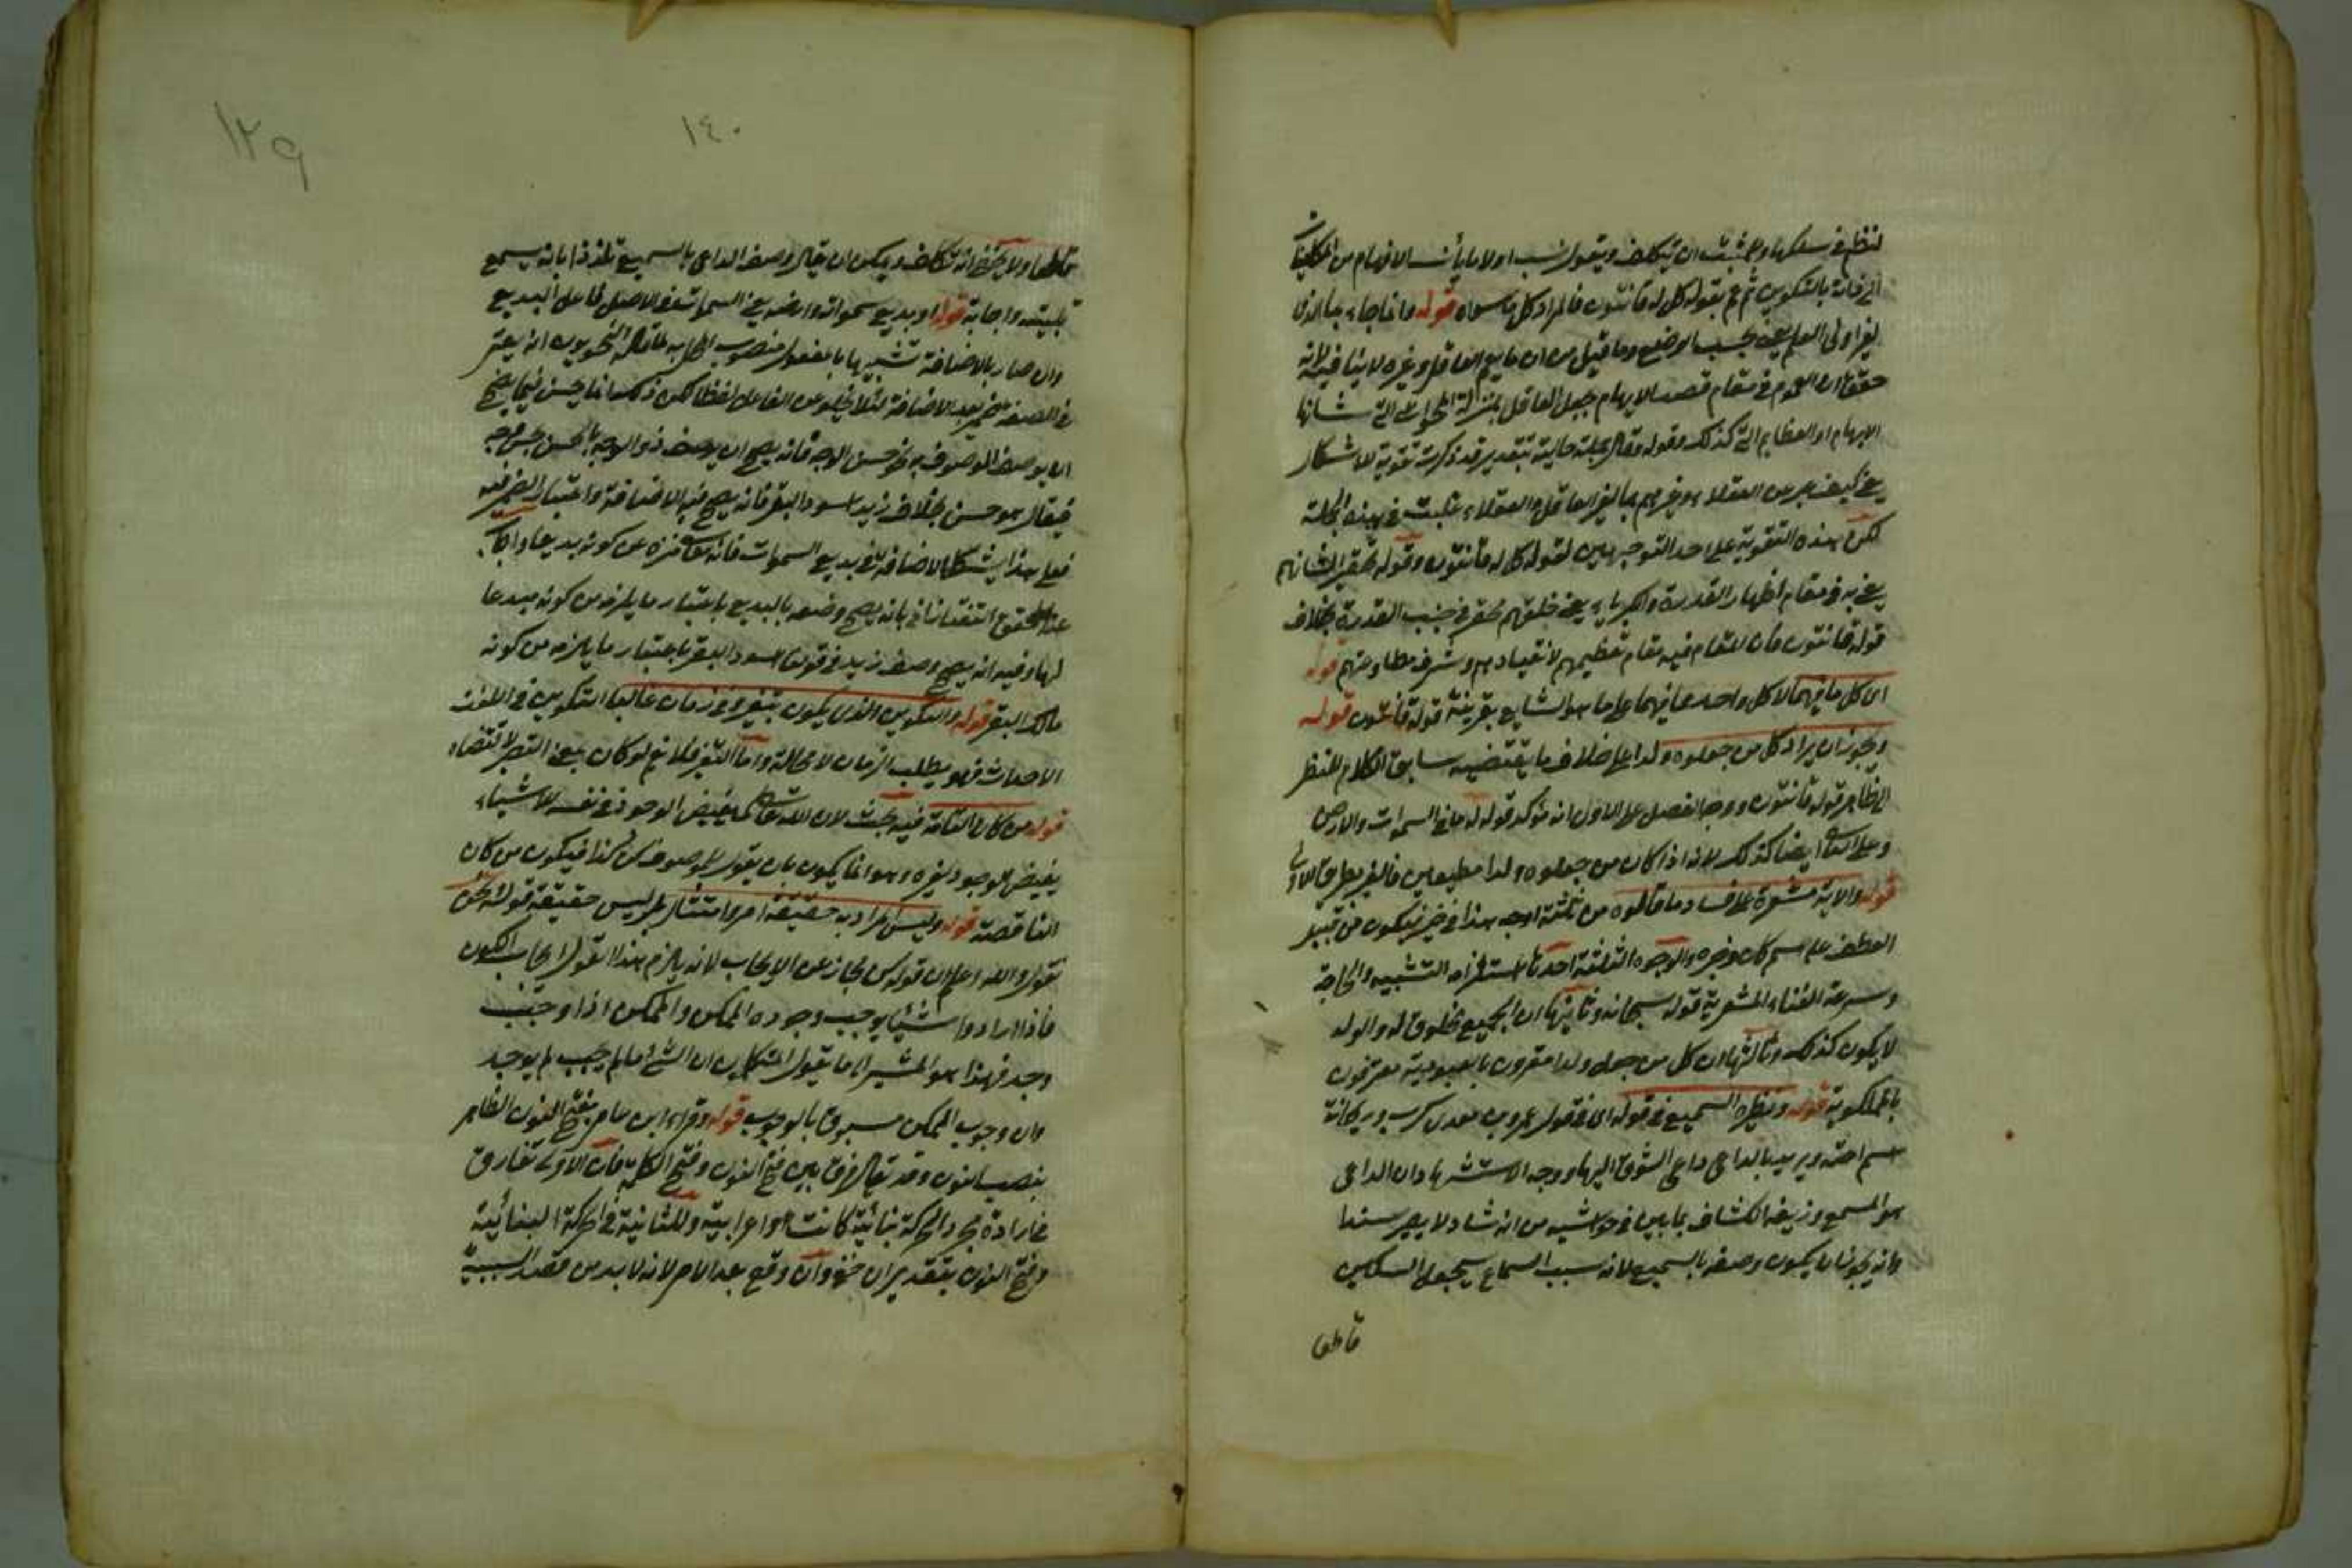 لنظم في سلكها ولا يثبت ان يتكلف ويقول نسب اولا ما يأنسه الافهام من
الى ذاته بالتكوين ثم عم بقوله كل له قانتون فالمراد كل ما سواه قوله وانما جاء بما الذي
لغير اولى العلم يعنى بحسب الوضع وما قيل من ان ما يعم العاقل وغيره لا ينافيه لانه
حقق ان العموم في مقام قصد الابهام جعل العاقل بمنزلة التي شانها
الابهام او العظايم التي كذلك وقوله وقال جملة حالية بتقدير قد ذكرت تقوية للاشكال
يعنى كيف عبر عن العقلاء وغيرهم بما لغير العاقل والعقلاء غلبت في هذه الجملة
لكن هذه التقوية على احد التوجيهين لقوله كل له قانتون وقوله تحقيرا لشانهم
يعنى به في مقام اظهار القدرة والكبرياء يعنى خلقهم محقر في جنب القدرة بخلاف
قوله قانتون فان المقام فيه مقام تعظيمهم لانقيادهم وشرف مطاوعتهم قوله
اى كل ما فيهما لا كل واحد مما فيهما على ما هو الشايع بقرينة قوله قانتون قوله
ويجوز ان يراد كل من جعلوه ولدا على خلاف ما يقتضيه سابق الكلام للنظر
الى ظاهر قوله قانتون ووجه الفصل على الاول انه مؤكد قوله له ما في السموات والارض
وعلى الثاني ايضا كذلك لانه اذا كان من جعلوه ولدا مطيعين فالغير بطريق الاولى
قوله والاية مشعرة على فساد ما قالوه من ثلثة اوجه هذا في خبر فيكون من قبيل
العطف على اسم كان وخبره والوجوه الثلثة احدها استلزامه التشبيه والحاجة
وسرعة الفناء المشعرية قوله سبحانه وثانيها ان الجميع مخلوق له والولد
لا يكون كذلك وثالثها ان كل من جعله ولدا مقرون بالعبودية معترفون
بالمملوكية قوله ونظيره السميع في قوله اى في قول عمرو بن معدى كرب وريحانة
اسم اخته ويريد بالداعى داعى الشوق اليها ووجه الاستشهاد ان الداعى
هو المسمع وزيفه الكشاف بما بين في حواشيه من انه شاذ لا يصير سندا
وانه يجوز ان يكون وصفه بالسميع لانه سبب السماع يجعل السكين
قاطعا
١٣٩
١٤٠
قاطعا ولا يخفى انه تكلف ويمكن ان يقال وصف الداعى بالسميع تلذذا بانه يسمع
تلبيته واجابة قوله او بديع سمواته وارضه يعنى السموات في الاصل فاعل البديع
وان صار بالاضافة تشبيها بالمفعول منصوب المحل به النحويون انه يعتبر
في الصفة ضمير بعد الاضافة لئلا يخلو عن الفاعل لفظا لكن ذلك انما يحسن فيما يصح
ان يوصف الموصوف به نحو حسن الوجه فانه يصح ان يوصف ذو الوجه بالحسن
فيقال هو حسن بخلاف زيد اسود البقر فانه يصح فيه الاضافة واعتبار الضمير فيه
فعلى هذا يشكل الاضافة في بديع السموات فانه تعالى منزه عن كونه بديعا واجاب
عنه المحقق التفتازاني بانه يصح وصفه بالبديع باعتبار ما يلزمه من كونه مبدعا
لها وفيه انه يصح وصف زيد في قولك اسود البقر باعتبار ما يلزمه من كونه
مالك البقر قوله والتكوين الذى يكون بتغير وفي زمان غالبا التكوين في اللغة
الاحداث فهو يطلب الزمان لا محالة واما التغير فلا نعم لو كان بمعنى التصيير لاقتضاه
قوله من كان التامة فيه بحث لان الله تعالى كما يفيض الوجود في نفسه للاشياء
يفيض الوجود لغيره وهو انما يكون بان يقول للموصوف كن كذا فيكون من كان
الناقصة قوله وليس المراد به حقيقة امر وامتثال بل ليس حقيقة قول نحن
نقول والله اعلم ان قوله كن مجاز عن الايجاب لانه يلزم هذا القول ايجاب الكون
فاذا ارادوا شيئا يوجب وجوده الممكن والممكن اذا وجب
وجد فهذا هو المشير الى ما يقول المتكلمين ان الشئ ما لم يجب لم يوجد
وان وجوب الممكن مسبوق بالوجوب قوله وقراء ابن عامر بفتح النون الظاهر
بنصب النون وقد يقال فرق بين فتح النون وفتح الكلمة فان الاولى تفارق
في ارادة مجرد الحركة بنائية كانت او اعرابية وللثانية في الحركة البنائية
وفتح النون بتقدير ان نحو وان وقع بعد الامر لانه لا بد من قصد السببية